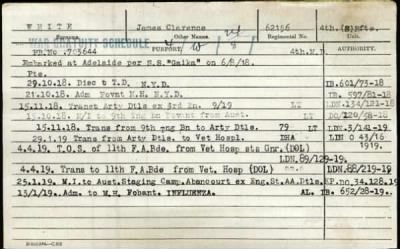 WHITE James Clarence 62156 4th.(S)Rfts.
Surname. Other Names. Regimental No. Unit.
WAR GRATUITY SCHEDULE
PR.No. 703644 PURPORT. 4th.M.D. AUTHORITY.
Embarked at Adelaide per S.S."Gaika" on 6/8/18.
Pte.
29.10.18. Disc t T.D. N.Y.D. IB.601/73-18
21.10.18. Adm Fovnt M.H. N.Y.D. IB. 597/81-18
15.11.18. Transt Arty Dtls ex 3rd Bn. 9/19 LT LDN.134/121-18
15.10.18. M/I to 9th Tng Bn Fovnt from Aust. LT DO/120/98-18
15.11.18. Trans from 9th Tng Bn to Arty Dtls. 79 LT LDN.3/141-19
29.1.19 Trans from Arty Dtls. to Vet Hospl. IHA LDN 0 43/16
4.4.19. T.O.S. of 11th F.A.Bde. from Vet Hosp sts Gnr.(DOL) 1919.
LDN.89/129-19.
4.4.19. Trans to 11th F.A.Bde from Vet. Hosp (DOL) LDN.88/219-19
25.1.19. M.I.to Aust.Staging Camp.Abancourt ex Eng.St.AA.Dtls. KP.no 34.128.19
13/1/19. Adm. to M.H. Fobant. INFLUENZA. AL. IB. 652/28-19.